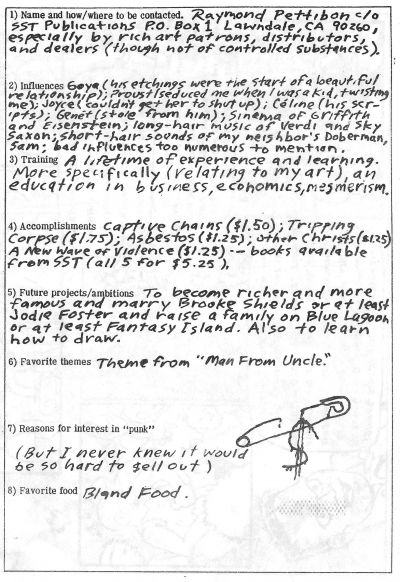 1) Name and how/where to be contacted. Raymond Pettibon c/o
SST Publications P.O. Box 1 Lawndale, CA 90260,
especially by rich art patrons, distributors,
and dealers (though not of controlled substances).
2) Influences Goya (his etchings were the start of a beautiful
relationship); Proust (seduced me when I was a kid, twisting
me); Joyce (couldn't get her to shut up); Céline (his scr-
ipts); Genêt (stole from him); Sinema of Griffith
and Eisenstein; long-hair music of Verdi and Sky
Saxon; short-hair sounds of my neighbor's Doberman,
Sam; bad influences too numerous to mention.
3) Training A lifetime of experience and learning.
More specifically (relating to my art), an
education in business, economics, mesmerism.
4) Accomplishments Captive Chains ($1.50); Tripping
Corpse ($1.75); Asbestos ($1.25); Other Christs ($1.25)
A New Wave of Violence ($1.25) -- books available
from SST (all 5 for $5.25).
5) Future projects/ambitions To become richer and more
famous and marry Brooke Shields or at least
Jodie Foster and raise a family on Blue Lagoon
or at least Fantasy Island. Also to learn
how to draw.
6) Favorite themes Theme from "Man From Uncle."
7) Reasons for interest in "punk"
(But I never knew it would
be so hard to $ell out)
8) Favorite food Bland Food.